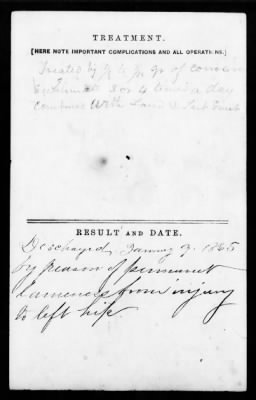 TREATMENT.
[HERE NOTE IMPORTANT COMPLICATIONS AND ALL OPERATIONS.]
Treated by to gr of
3 or 4 times a day
with
RESULT AND DATE.
Discharged January 9. 1865
by reason of permanent
Lameness from injury
to left hip.